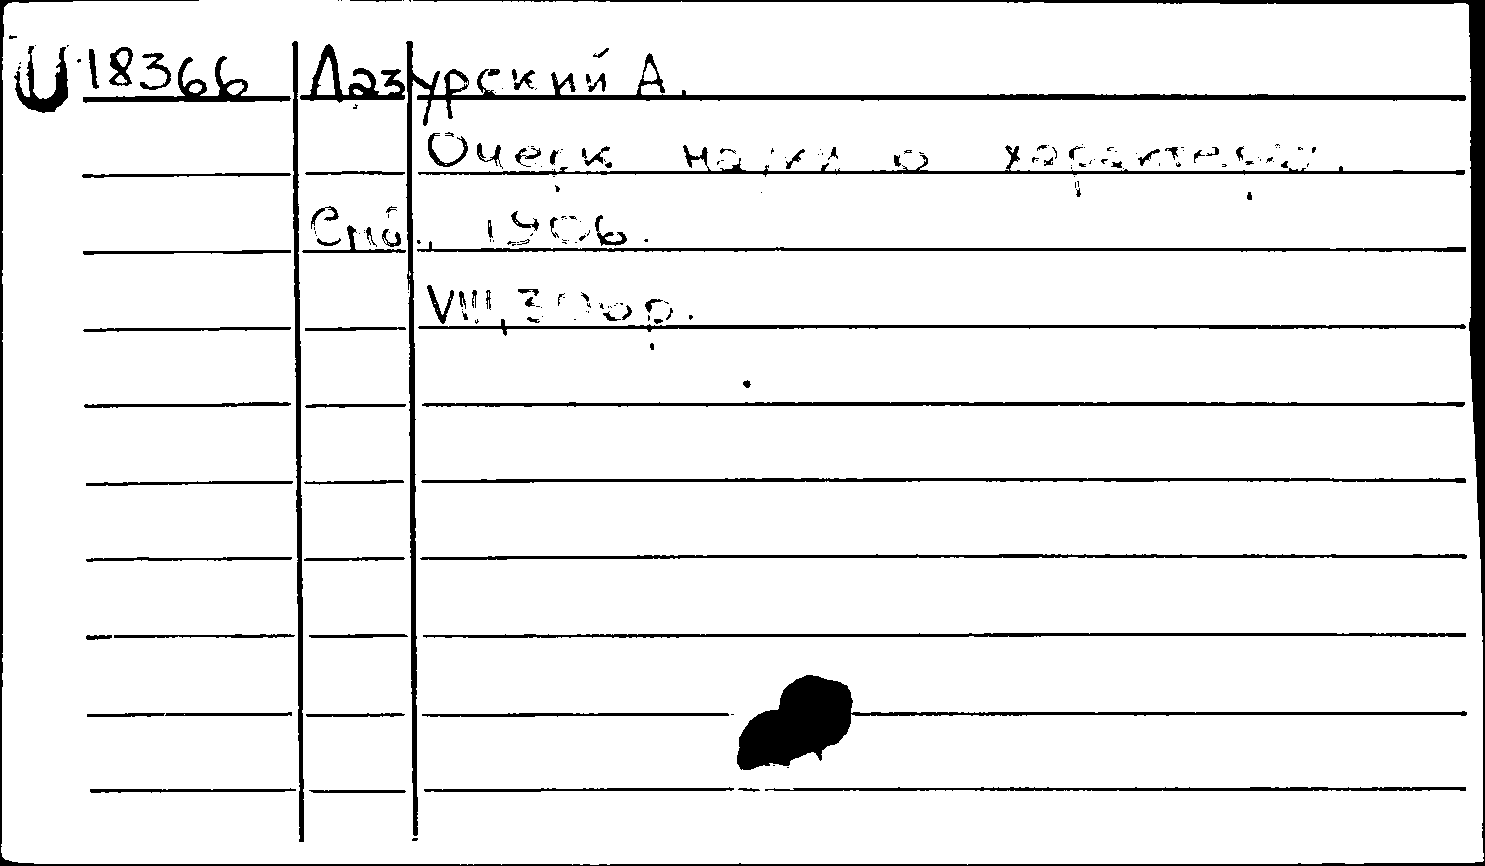 U 18366 Лазурский А.
Очерк науки о характерах.
Спб., 1906.
VIII, 306 p.